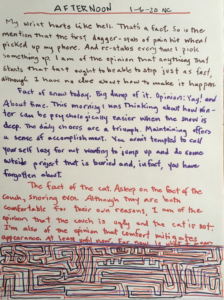 AFTERNOON 1-6-20 NC
My wrist hurts like hell. That's a fact. So is the
mention that the best dagger-stabs of pain hit when I
picked up my phone. And re-stabs every time I pick
something up. I am of the opinion that anything that
starts that fast ought to be able to stop just as fast,
although I have no clue about how to make it happen.
Fact of snow today. Big dump of it. Opinion: Yay! and
About time. This morning I was thinking about how win-
ter can be psychologically easier when the snow is
deep. The daily chores are a triumph. Maintaining offers
a sense of accomplishment. You aren't tempted to call
yourself lazy for not wanting to jump up and do some
outside project that is buried and, in fact, you have
forgotten about.
The fact of the cat. Asleep on the foot of the
couch, snoring even. Although they are both
comfortable for their own reasons, I am of the
opinion that the couch is ugly and the cat is not.
I'm also of the opinion that comfort mitigates
appearance. At least until